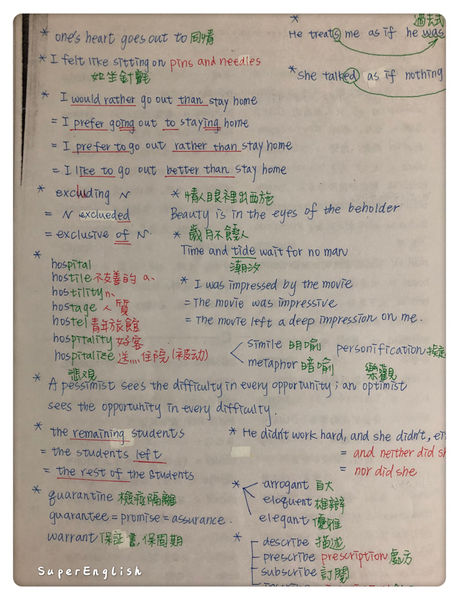 過去式
* one's heart goes out to 同情
* He treats me as if he was
* I felt like sitting on pins and needles
如坐針氈
* She talked as if nothing
* I would rather go out than stay home
= I prefer going out to staying home
= I prefer to go out rather than stay home
= I like to go out better than stay home
* excluding N
= N exclueded
= exclusive of N.
* 情人眼裡出西施
Beauty is in the eyes of the beholder
* 歲月不饒人
Time and tide wait for no man
潮汐
* hospital
hostile 不友善的 a.
hostility n.
hostage 人質
hostel 青年旅館
hospitality 好客
hospitalize 送...住院 (被动)
* I was impressed by the movie
= The movie was impressive
= The movie left a deep impression on me.
simile 明喻
metaphor 暗喻
personification
悲观
樂觀
* A pessimist sees the difficulty in every opportunity; an optimist
sees the opportunity in every difficulty.
* the remaining students
= the students left
= the rest of the students
* He didn't work hard, and she didn't,
= and neither did
= nor did she
* quarantine 檢疫隔離
guarantee = promise = assurance.
warrant 保証書,保固期
* arrogant 自大
eloquent 雄辯
elegant 優雅
* describe 描述
prescribe prescription 處方
subscribe 訂閱
SuperEnglish